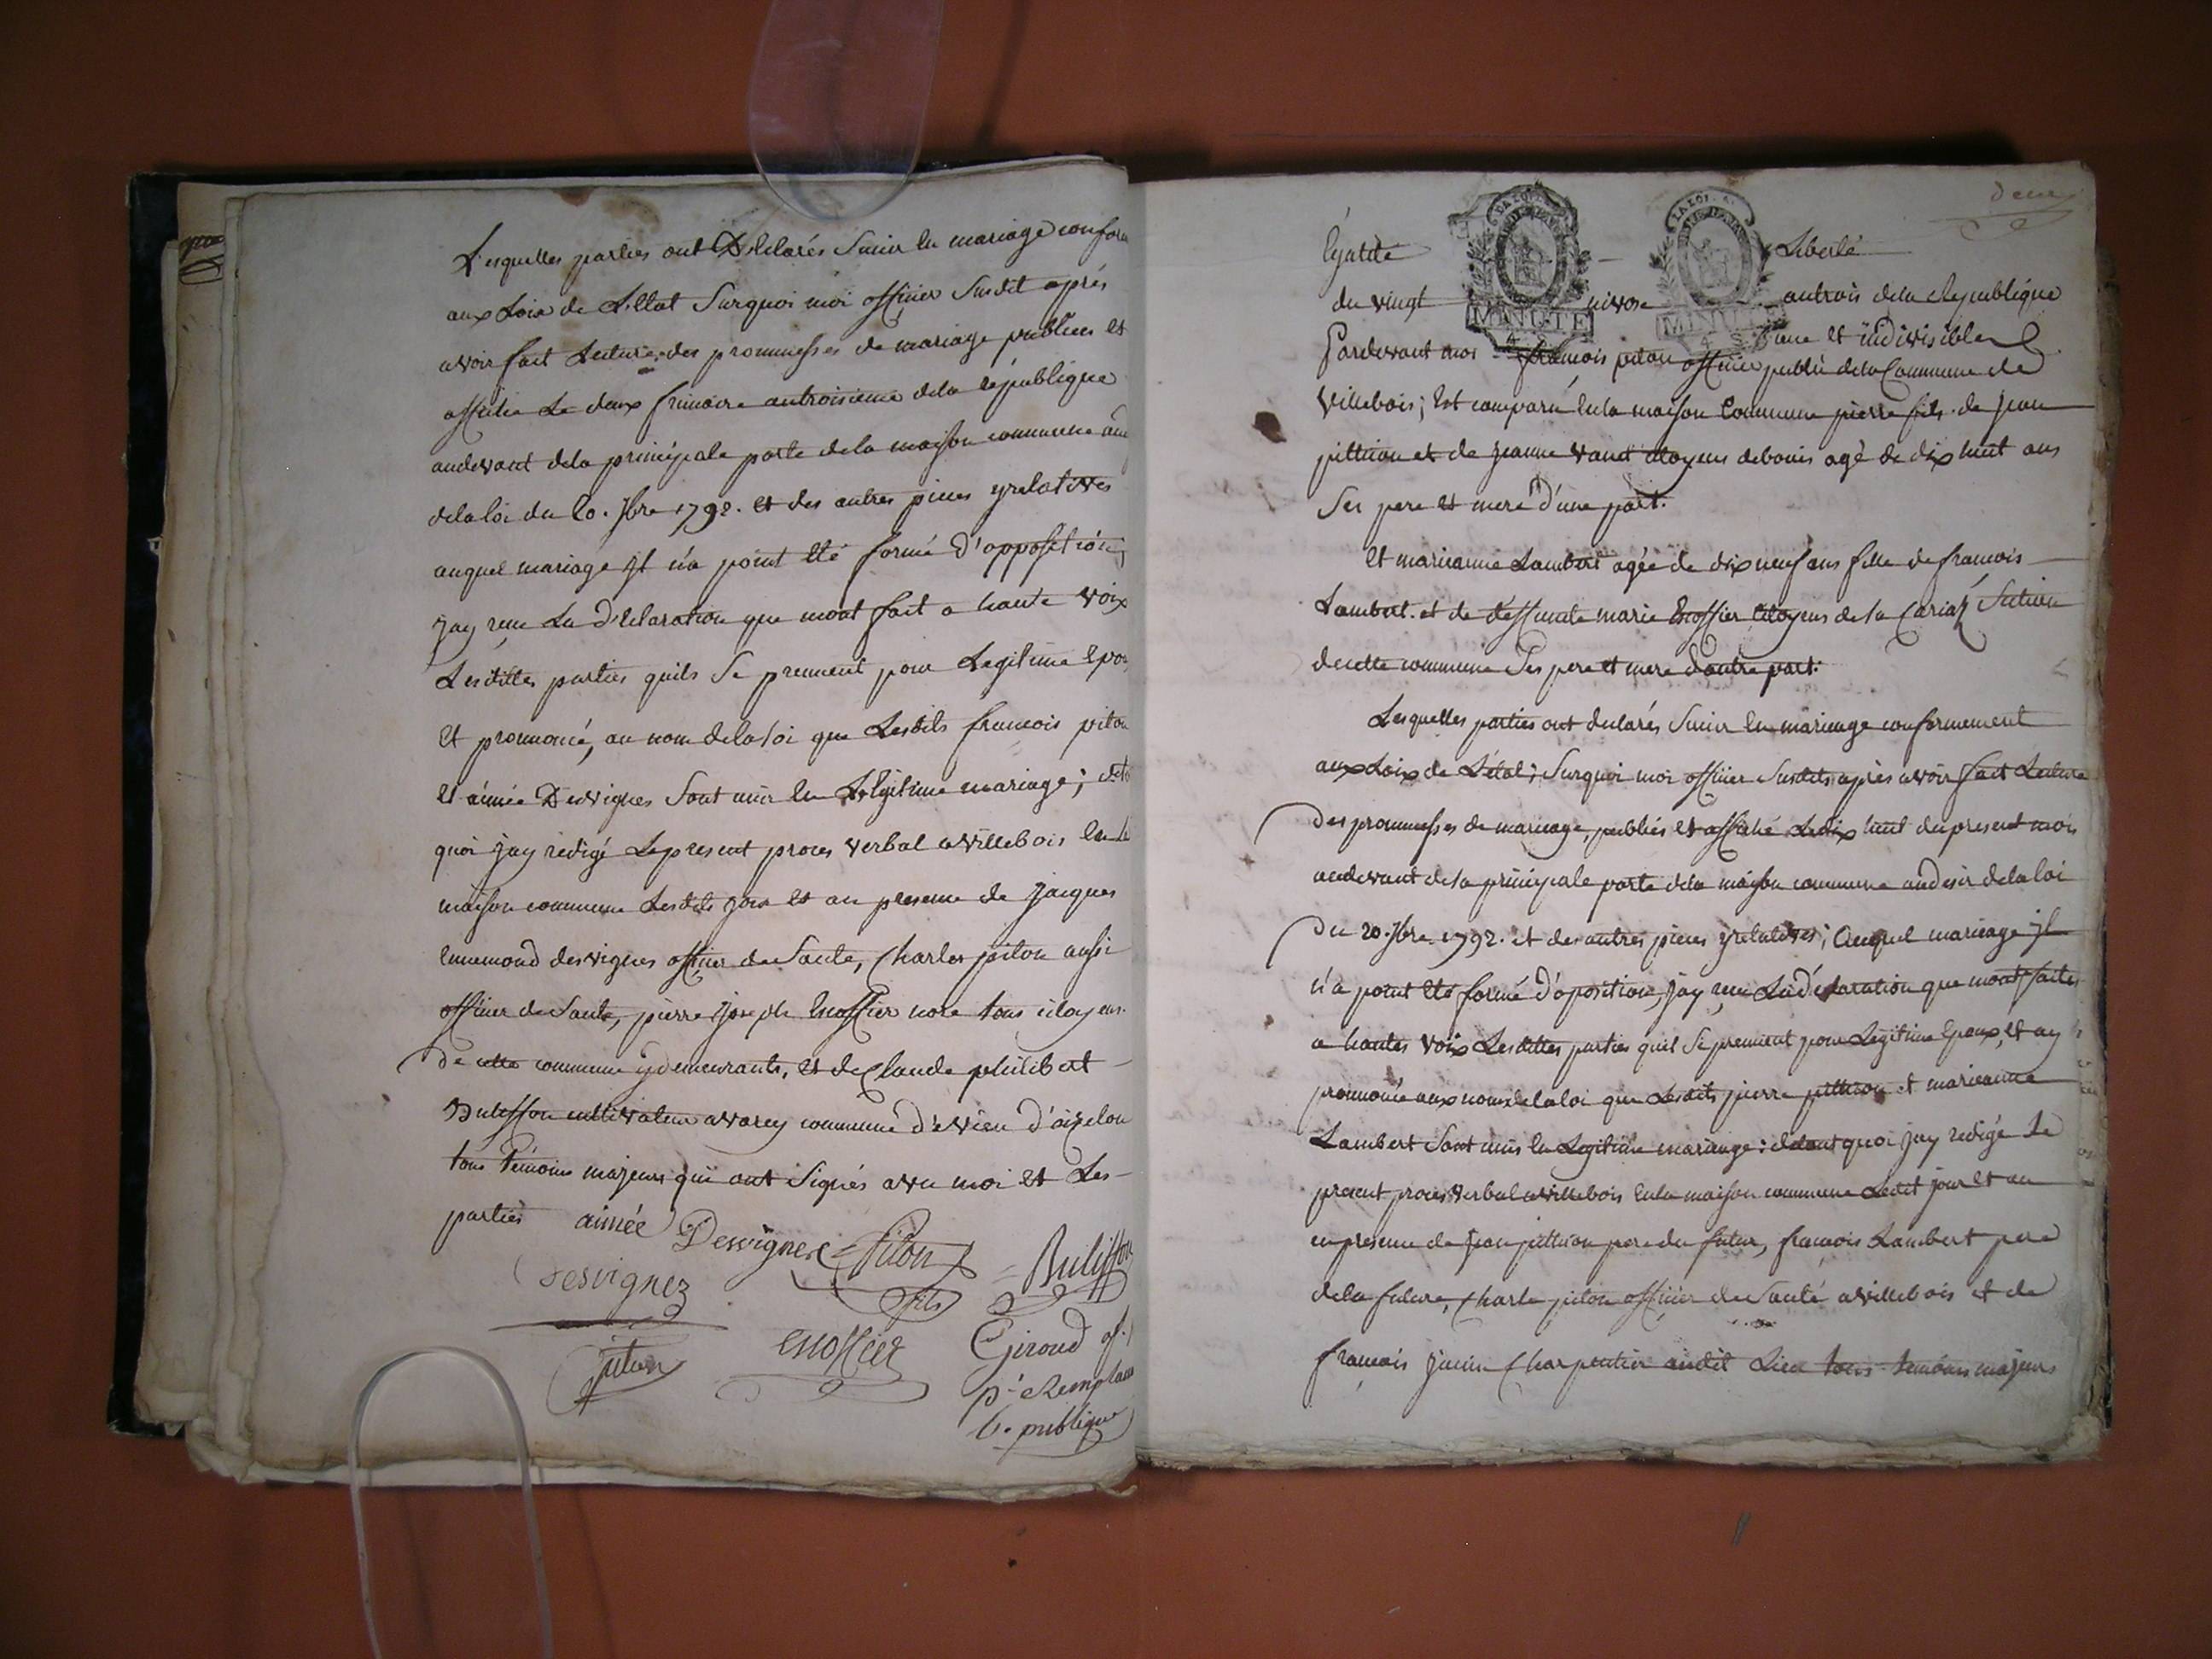 Lesquelles parties ont Déclarés S'unir en mariage conform
aux Loix de L'Etat Surquoi moi officier Susdit aprés
avoir fait Lecture des promesses de mariage publiées et
affichée Le deux frimaire an troisieme de la république
audevant de la principale porte de la maison commune au
de la loi du 20. 7bre 1792. et des autres pieces y relatives
auquel mariage Jl n'a point été formé d'opposition,
jay reçu La Déclaration que mont fait a haute voix
Lesdittes parties quils Se prennent pour Legitime epou
et prononcé, au nom de la loi que Lesdits francois piton
et aimée Desvignes Sont unis en Légitime mariage; de to
quoi jay redigé Le present proces verbal a villebois en la
maison commune Lesdits jour et an presence de Jacques
ennemond desvignes officier de Santé, Charles piton aussi
officier de Santé, pierre joseph Escoffier nore tous citoyens
de cette commune y demeurants, et de Claude philibert
Bulisson cultivateur a varey commune de
tous Témoins majeurs qui ont Signés avec moi et Les
parties aimée Desvignes Piton fils Buliffon
Desvignes
piton Escoffier Giroud of.
pr Remplace
l. publique
deux
Egalité — Liberté
du vingt nivose an trois de la Republique
une et indivisible
Pardevant moi francois piton officier public de la Commune de
Villebois; Est comparu en la maison Commune pierre fils de jean
pittion et de jeanne citoyens de bouis agé de dix huit ans
Ses pere et mere d'une part.
Et marieanne Lambert agée de dix neuf ans fille de francois
Lambert et de marie Escoffier Citoyens de la Section
de cette commune Ses pere et mere d'autre part.
Lesquelles parties ont declarés S'unir en marieage conformement
aux Loix de L'état; Surquoi moi officier Susdits après avoir fait Lecture
des promesses de marieage, publiés et affiché Le dix huit du present mois
audevant de la principale porte de la maison commune au desir de la loi
du 20. 7bre 1792. et des autres pieces y relatives; Auquel marieage jl
n'a point été formé d'oposition, jay reçu La déclaration que mont faites
a hautes voix Lesdittes parties quil Se prennent pour Legitime Epoux, et ay
prononcée aux nom de la loi que Lesdits pierre pittion et marieanne
Lambert Sont unis en Legitime marieage: de tout quoi jay redigé Le
present proces verbal a villebois en la maison commune Ledit jour et an
en presence de jean pittion pere du futur, francois Lambert pere
de la future, Charle piton officier de Santé a villebois et de
francois Charpentier audit Lieu tous temoins majeurs
LA LOI
MINUTE
4 S
LA LOI
MINUTE
4 S